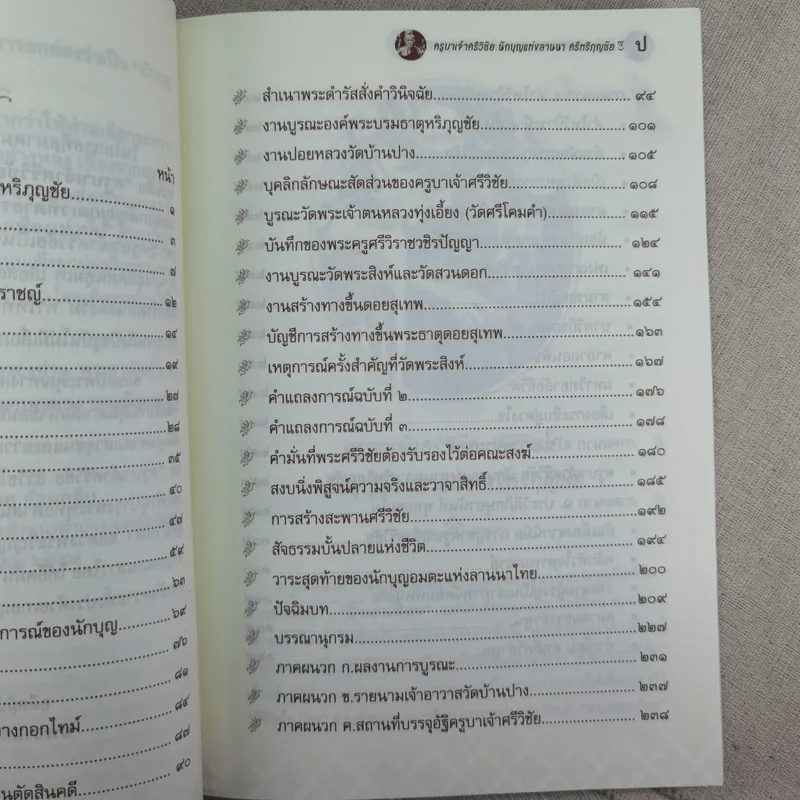 หน้า
หริภุญชัย........ ๑
๓
๗
ราชญ์........ ๑๒
๑๔
๑๙
๒๗
๒๘
๓๕
๔๐
๔๗
๕๙
๖๓
การณ์ของนักบุญ........ ๖๙
๗๖
๘๑
๘๔
างกอกไทม์........ ๘๗
๙๐
นตัดสินคดี
ครูบาเจ้าศรีวิชัย นักบุญแห่งลานนา ศรีหริภุญชัย ป
สำเนาพระดำรัสสั่งคำวินิจฉัย........ ๙๔
งานบูรณะองค์พระบรมธาตุหริภุญชัย........ ๑๐๑
งานปอยหลวงวัดบ้านปาง........ ๑๐๕
บุคลิกลักษณะสัดส่วนของครูบาเจ้าศรีวิชัย........ ๑๐๘
บูรณะวัดพระเจ้าตนหลวงทุ่งเอี้ยง (วัดศรีโคมคำ)........ ๑๑๕
บันทึกของพระครูศรีวิราชวชิรปัญญา........ ๑๒๔
งานบูรณะวัดพระสิงห์และวัดสวนดอก........ ๑๔๑
งานสร้างทางขึ้นดอยสุเทพ........ ๑๕๔
บัญชีการสร้างทางขึ้นพระธาตุดอยสุเทพ........ ๑๖๓
เหตุการณ์ครั้งสำคัญที่วัดพระสิงห์........ ๑๖๗
คำแถลงการณ์ฉบับที่ ๒........ ๑๗๖
คำแถลงการณ์ฉบับที่ ๓........ ๑๗๘
คำมั่นที่พระศรีวิชัยต้องรับรองไว้ต่อคณะสงฆ์........ ๑๘๐
สงบนิ่งพิสูจน์ความจริงและวาจาสิทธิ์........ ๑๘๕
การสร้างสะพานศรีวิชัย........ ๑๙๒
สัจธรรมบั้นปลายแห่งชีวิต........ ๑๙๔
วาระสุดท้ายของนักบุญอมตะแห่งลานนาไทย........ ๒๐๐
ปัจฉิมบท........ ๒๐๙
บรรณานุกรม........ ๒๒๗
ภาคผนวก ก.ผลงานการบูรณะ........ ๒๓๑
ภาคผนวก ข.รายนามเจ้าอาวาสวัดบ้านปาง........ ๒๓๗
ภาคผนวก ค.สถานที่บรรจุอัฐิครูบาเจ้าศรีวิชัย........ ๒๓๘